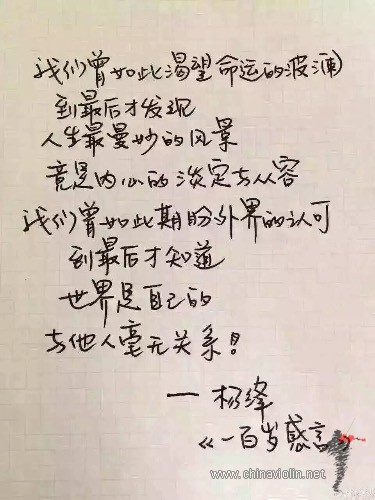 我们曾如此渴望命运的波澜
到最后才发现
人生最曼妙的风景
竟是内心的淡定与从容
我们曾如此期盼外界的认可
到最后才知道
世界是自己的
与他人毫无关系！
— 杨绛
《一百岁感言》
www.chinaviolin.net